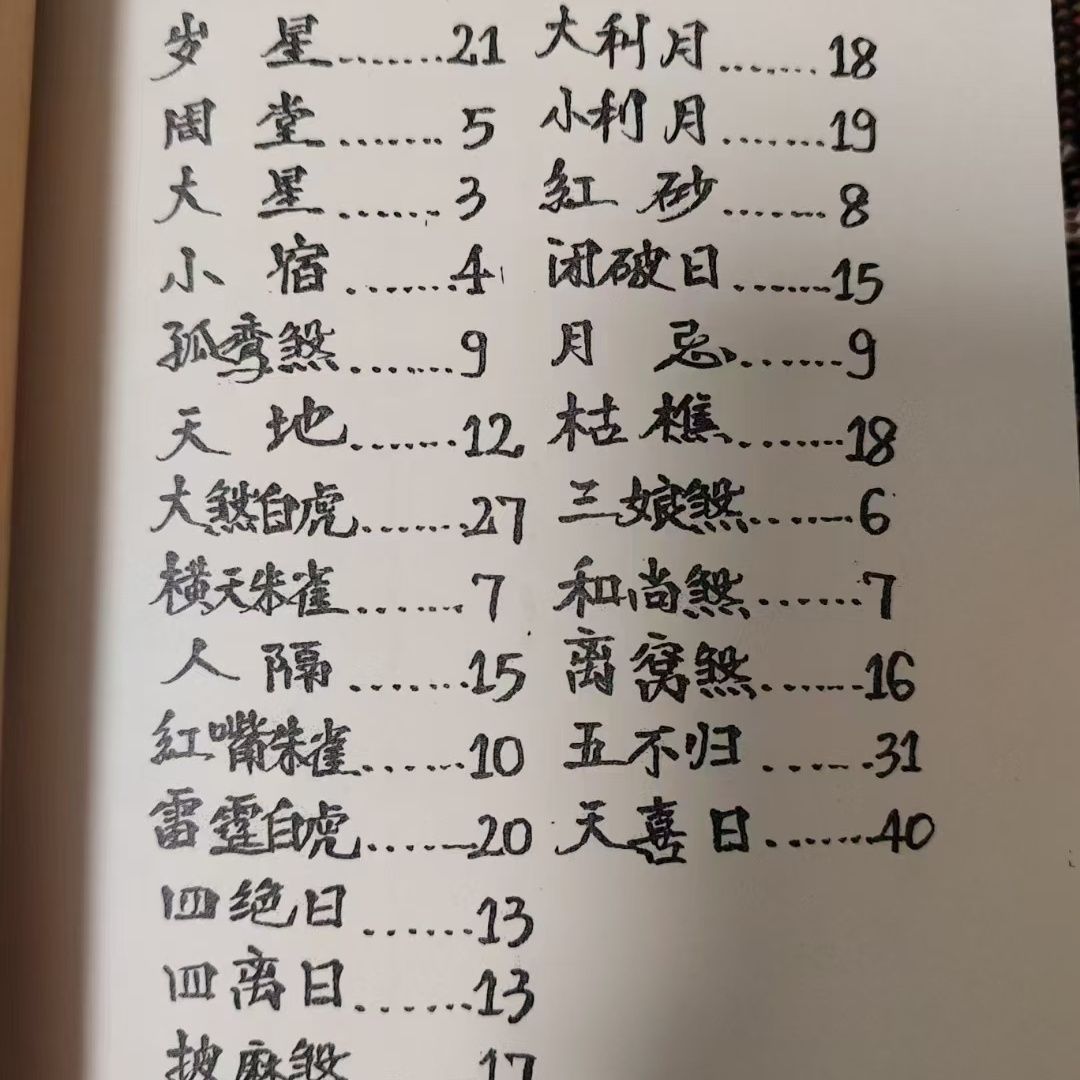 岁星........21
周堂.......5
大星.......3
小宿.......4
孤鸾煞.......9
天地.......12
大煞白虎.......27
横天朱雀.......7
人隔.......15
紅嘴朱雀.......10
雷霆白虎.......20
四绝日.......13
四离日.......13
披麻煞 17
大利月.......18
小利月.......19
紅砂.......8
闭破日.......15
月忌.......9
枯樵.......18
三娘煞.......6
和尚煞.......7
离窝煞.......16
五不归.......31
天喜日.......40